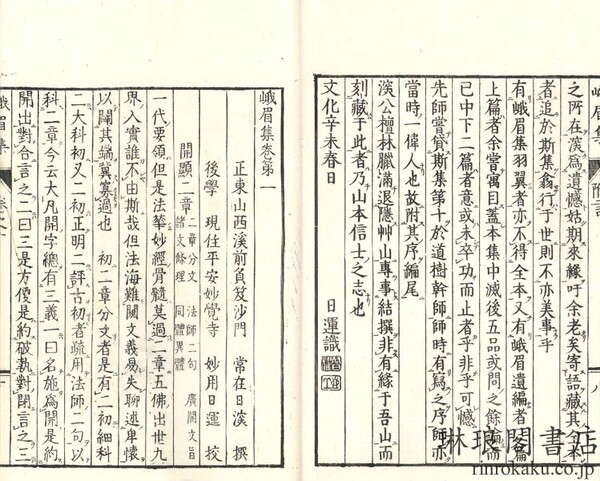 之所在深為遺憾姑期來緣吁余老矣寄語藏其全本
者追於斯集翕行于世則不亦美事乎
有峨眉集羽翼者亦不得全本又有峨眉遺編者
上篇者余嘗寓目蓋本集中滅後五品或問之餘論而
已中下二篇者意或未卒功而止者乎非乎可憾
先師嘗贊斯集第十於道樹幹師師時有寫之序師亦
當時一偉人也故附其序編尾
溪公檀林臘滿退隱艸山專事結撰非有緣于吾山而
刻藏于此者乃山本信士之志也
文化辛未春日
日運識
峨眉集卷第一
正東山西溪前負笈沙門 常在日深 撰
後學 現住平安妙覺寺 妙用日運 校
開顯二章 二章分文 法師二句 廣開文旨
諸文條理 同體異體
一代要領但是法華妙經骨髓莫過二章五佛出世九
界入實誰不由斯哉但法海難關文義易失聊述卑懷
以闢其端冀寡過也 初二章分文者是有二初細科
二大科初又二初正明二評古初者疏用法師二句以
科二章今云大凡開字總有三義一曰名施為開是約
開出對合言之二曰三是方便是約破執對閉言之三
林琅閣書店
rinrokaku.co.jp